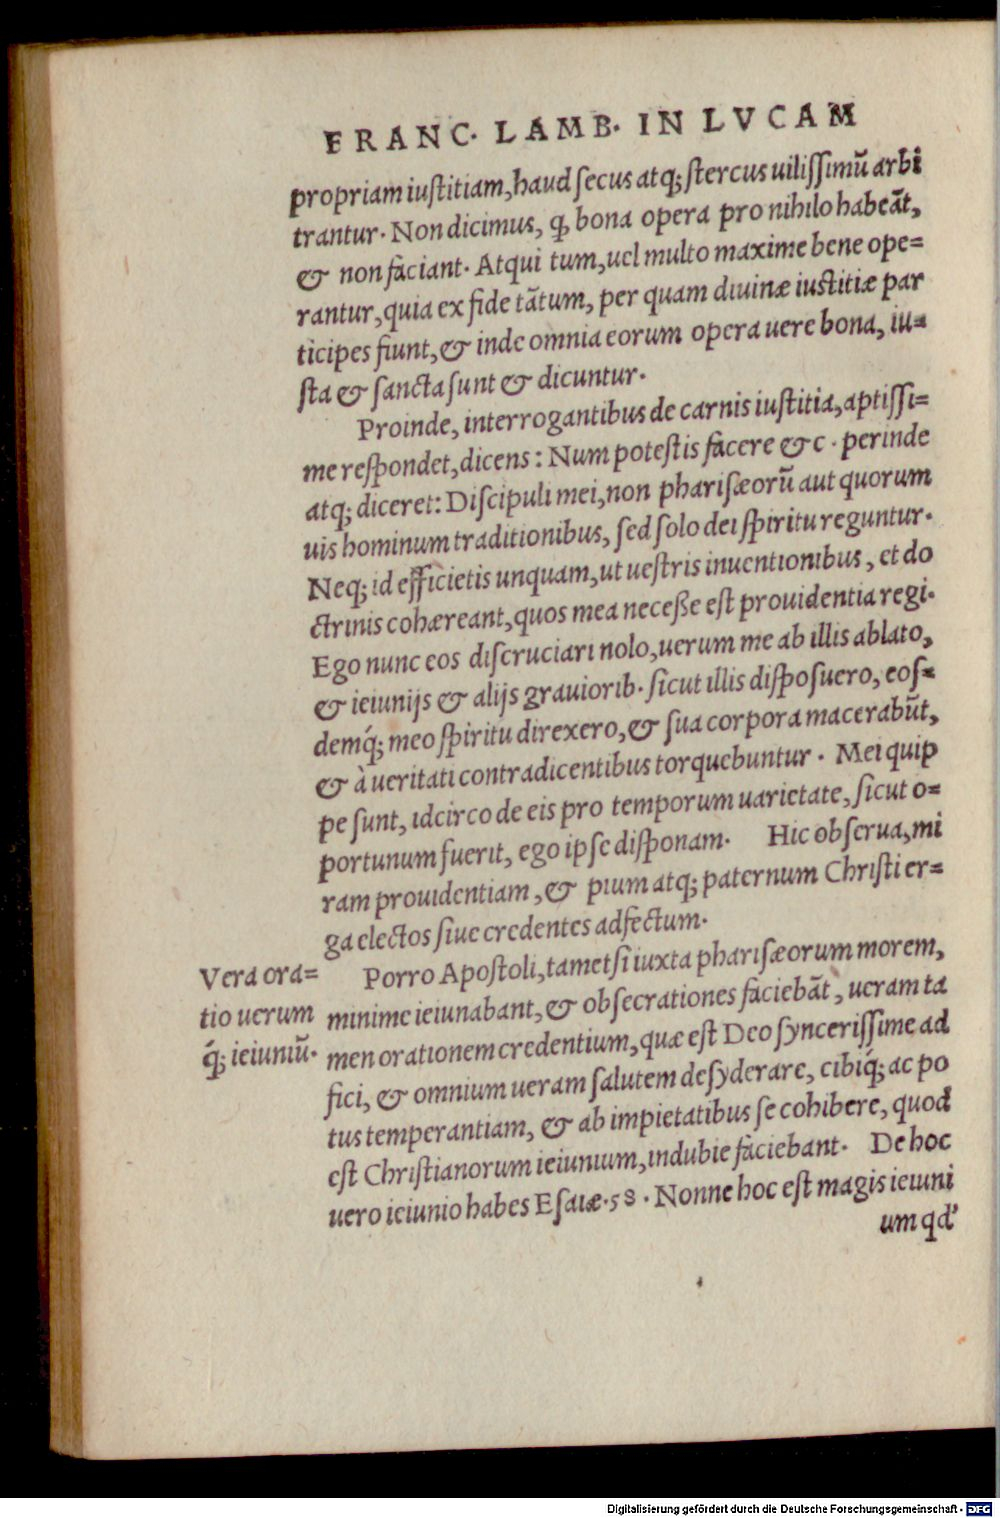 FRANC. LAMB. IN LVCAM
propriam iuſtitiam, haud ſecus atq; ſtercus uiliſſimū arbi
trantur. Non dicimus, ꝙ bona opera pro nihilo habeāt,
& non faciant. Atqui tum, uel multo maxime bene ope=
rantur, quia ex fide tātum, per quam diuinæ iuſtitiæ par
ticipes fiunt, & inde omnia eorum opera uere bona, iu=
ſta & ſancta ſunt & dicuntur.
Proinde, interrogantibus de carnis iuſtitia, aptiſſi=
me reſpondet, dicens: Num poteſtis facere &c. perinde
atq; diceret: Diſcipuli mei, non phariſæorū aut quorum
uis hominum traditionibus, ſed ſolo dei ſpiritu reguntur.
Neq; id efficietis unquam, ut ueſtris inuentionibus, et do
ctrinis cohæreant, quos mea neceße eſt prouidentia regi.
Ego nunc eos diſcruciari nolo, uerum me ab illis ablato,
& ieiunijs & alijs grauiorib. ſicut illis diſpoſuero, eoſ=
demq́; meo ſpiritu direxero, & ſua corpora macerabūt,
& à ueritati contradicentibus torquebuntur. Mei quip
pe ſunt, idcirco de eis pro temporum uarietate, ſicut o=
portunum fuerit, ego ipſe diſponam. Hic obſerua, mi
ram prouidentiam, & pium atq; paternum Chriſti er=
ga electos ſiue credentes adfectum.
Vera ora=
tio uerum
q́; ieiuniū.
Porro Apoſtoli, tametſi iuxta phariſæorum morem,
minime ieiunabant, & obſecrationes faciebāt, ueram ta
men orationem credentium, quæ eſt Deo ſynceriſſime ad
fici, & omnium ueram ſalutem deſyderare, cibiq́; ac po
tus temperantiam, & ab impietatibus ſe cohibere, quod
eſt Chriſtianorum ieiunium, indubie faciebant. De hoc
uero ieiunio habes Eſaiæ. 58. Nonne hoc eſt magis ieiuni
um qd'
Digitalisierung gefördert durch die Deutsche Forschungsgemeinschaft - DFG